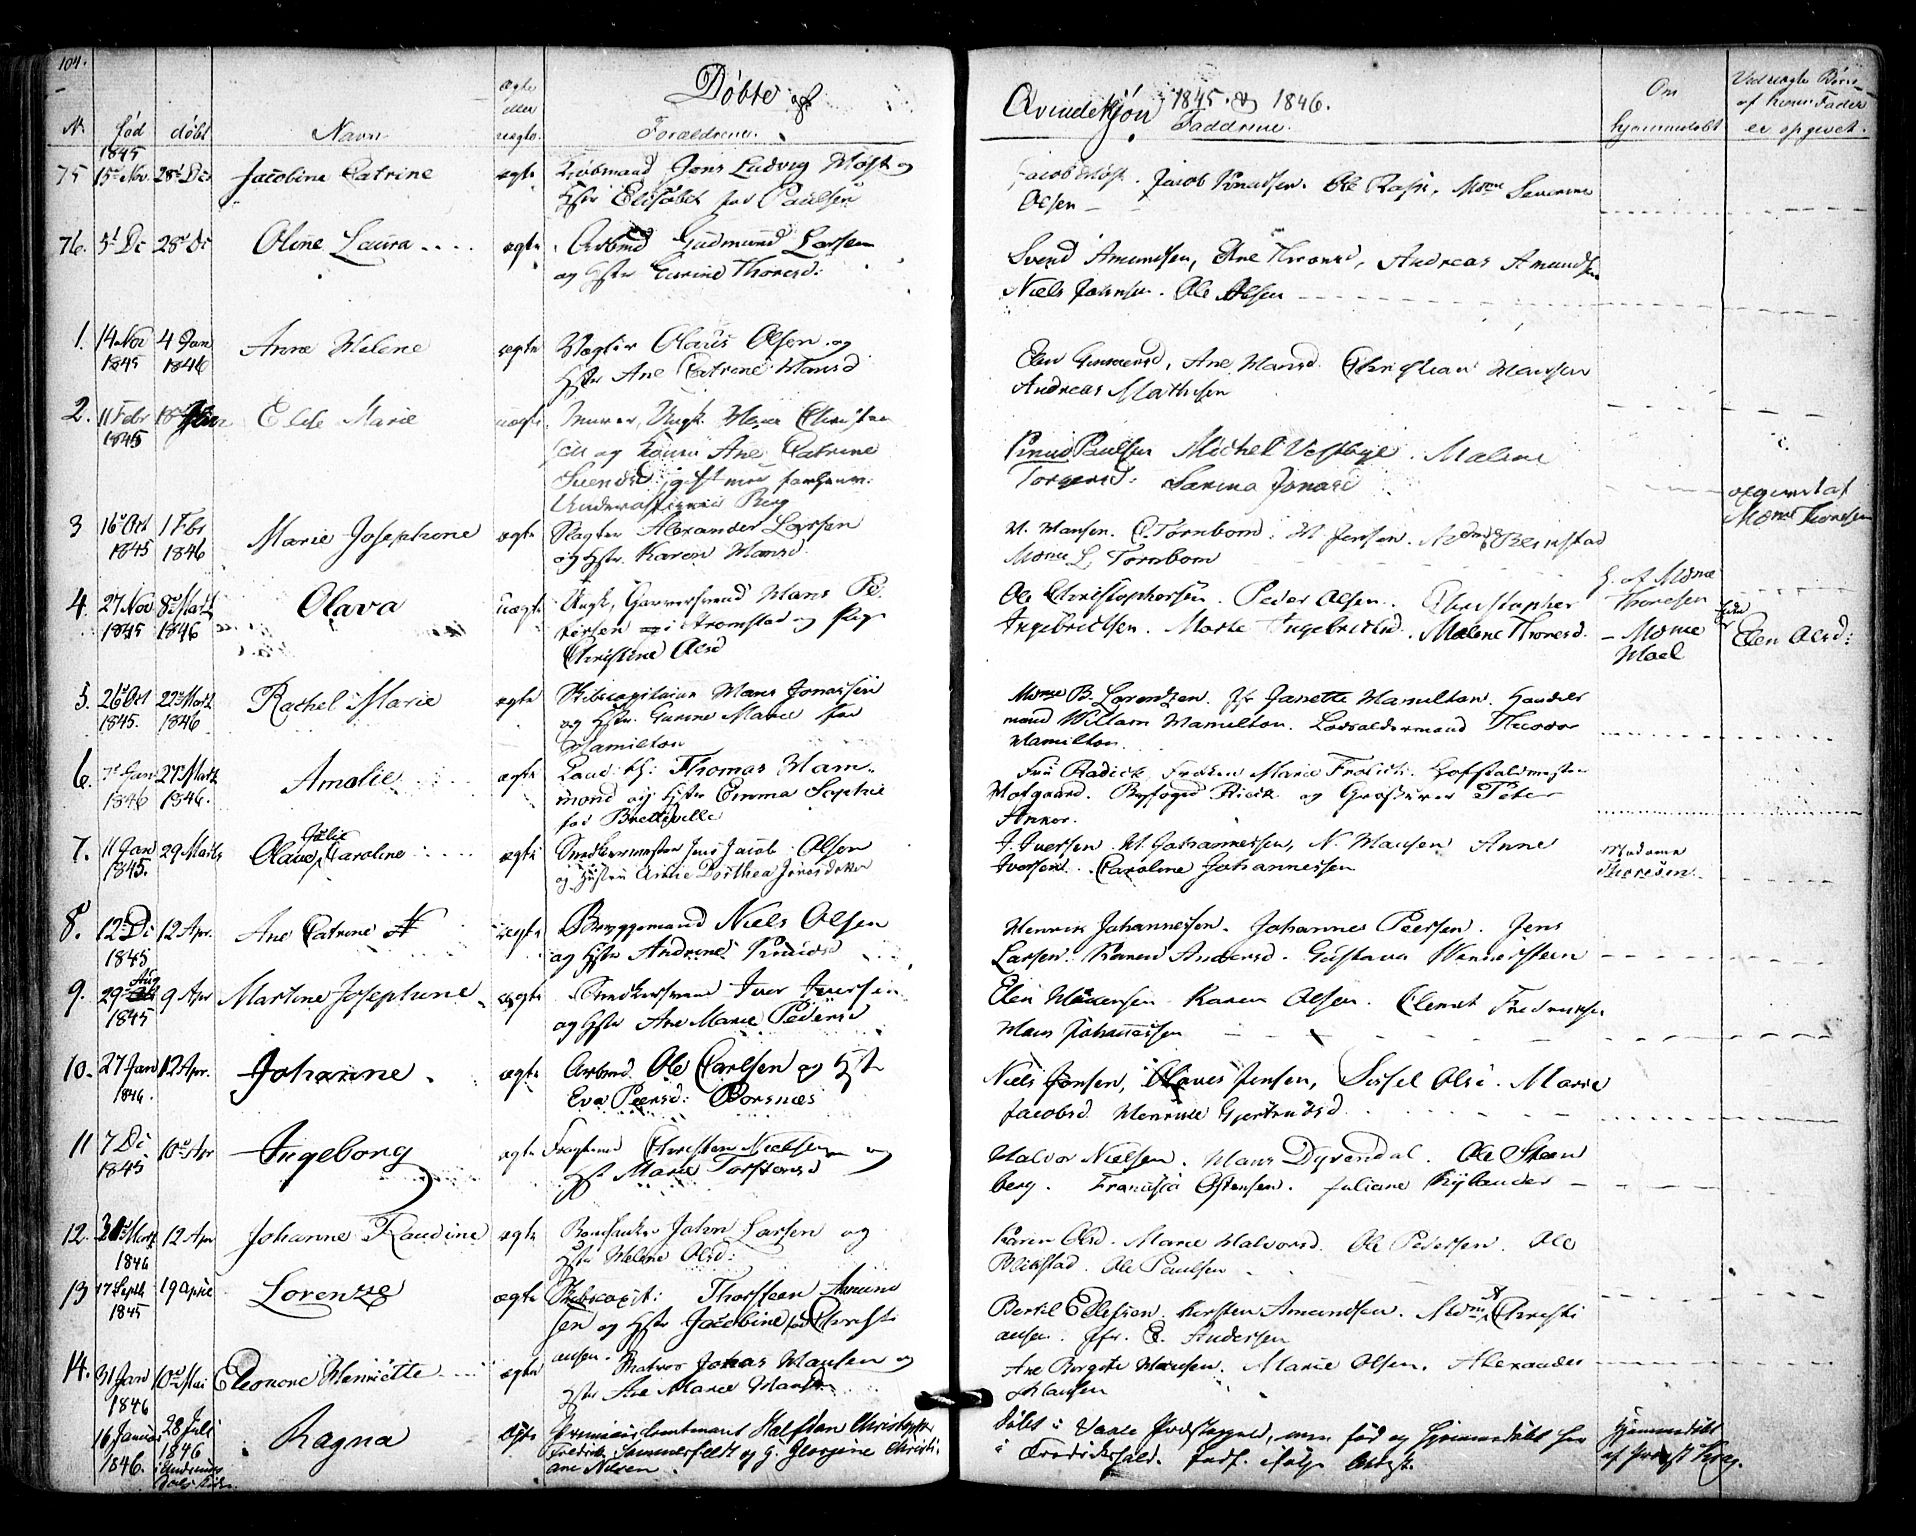 104.
Døbte af Qvindekjøn 1845 & 1846.
No født døbt Navn ægte eller uægte Forældrene. Faddrene. Om hjemmedøbt Ved uægte Børn af hvem Fader er opgivet.
1845
75 15de Nov 28de Dec Jacobine Catrine ægte Kjøbmand Jens Ludvig Møst og
Hstr Elisabet fød Paulsen
Jacob Møst. Jacob Knudsen. Ole Rask. Mdme Severine
Olsen
76. 5t Dc 28de Dc Oline Laura ægte Arbmd Gudmund Larsen
og Hstr Gurine Thoresd:
Svend Amundsen, Ane Thronsd, Andreas Amundsen
Niels Johnsen. Ole Olsen
1. 14 Nov 1845 4 Jan 1846 Anne Helene ægte Vægter Olaus Olsen og
Hstr Ane Catrine Hansd
Elen Gunnersd, Ane Hansd. Christian Hansen
Andreas Mathisen
2. 11 Febr 1845 18de Jan Elde Marie uægte Murer, Ungk. Hans Christen
sen og Kone Ane Catrine
Svendsd: gift med forhenv:
Underofficier Berg
Paulsen Michel Vestbye. Malene
Torgersd: Sarina Jonasd
opgivet af
Mdme Thoresen
3 16de Oct 1845 1 Febr 1846 Marie Josephine ægte Slagter Alexander Larsen
og Hstr Karen Hansd
H. Hansen. C. Tørnbom. H Jensen. Mdme Bernstad
Mdme L. Tørnbom
4. 27 Nov 1845 8de Marts 1846 Olava uægte Ungk, Garversvend Hans Pe
tersen i Strømstad og Pige
Christine Olsd
Ole Christophersen. Peder Olsen. Christopher
Ingebrictsen. Marte Ingebrictsd. Malene Thoresd.
H. af Mdme
Thoresen
– Mdme
Moel
Elen Olsd:
5. 26de Oct 1845. 22de Marts 1846 Rachel Marie ægte Skibscapitain Hans Jonassen
og Hstr. Gurine Marie fød
Hamilton
Mdme B. Lorentzen. Jfr Janette Hamilton. Handels
mand William Hamilton. Lodsoldermand Theodor
Hamilton.
6. 7de Jan 1846 27de Marts 1846. Amalie ægte Cand. th: Thomas Ham
mond og Hstr Emma Sophie
fød Brettville
Fru Radich, Frøken Marie Frølich. Hofstaldmester
Hofgaard. Byfoged Rieck og Grosserer Peter
Anker.
7. 11 Jan 1845. 29 Marts Olava Julie Caroline ægte Snedkermester Jens Jacob Olsen
og Hustru Anne Dorthea Jensdatter
J. Iversen. H. Johannessen, N. Hansen Anne
Iversen. Caroline Johannessen
Madame
Thoresen
8. 12 Dc 1845 12 Apr. Ane Catrine ægte Bryggemand Niels Olsen
og Hstr Andrine Knudsd
Henrik Johannesen. Johannes Peersen. Jens
Larsen. Karen Andersd. Gustava Wennersteen
9. 29de Aug 1845 9 Apr Martine Josephine ægte Snedkersvend Iver Iversen
og Hstr Ane Marie Pedersd
Elen Hansen Karen Olsen. Clemet Fredriksen
Hans Johannessen
10. 27 Jan 1846. 12 Apr. Johanne ægte Arbmd. Ole Carlsen og Hst
Eva Peersd: Borsnæs
Niels Jensen, Olaves Jensen, Sissel Olsd. Marie
Jacobsd Henrikke Gjertrudsd
11 7 Dc 1845 10de Apr Ingeborg ægte Fragtmd Christen Nielsen og
Hst Marie Torstensd
Halvor Nielsen. Hans Dyrendal. Ole Steen
berg. Francisca Østensen. Juliane Rylander
12. 30de Marts 1846 12 Apr Johanne Randine ægte Bondhusker John Larsen og
Hstr Helene Olsd:
Karen Olsd. Marie Halvorsd. Ole Pedersen. Ole
Blikstad. Ole Paulsen
13 17 Septb 1845 19 April Lorenze ægte Skibscapit: Thorsteen Amund
sen og Hstr Jacobine fød Christi
ansen.
Bertel Ellefsen. Kirsten Amundsen. Mdme A Christi
ansen. Jfr. E. Andersen
14. 31 Jan 1846 10de Mai Eleonore Henriette ægte Matros Johas Hansen og
Hstr Ane Marie Hansd
Ane Birgete Hansen. Marie Olsen. Alexander
Klausen
16 Januar 1846. 28 Juli 1846 Ragna ægte Premierlieutenant Halfdan Christopher
Fredrik Sommerfeldt og H. Georgine Christi
ane Nilsen.
Døbt i Vaale Præstegjeld, men fød og hjemmedøbt her
i Fredrikshald. Indf. ifølge Attest.
Hjemmedøbt
af Provst Krog.